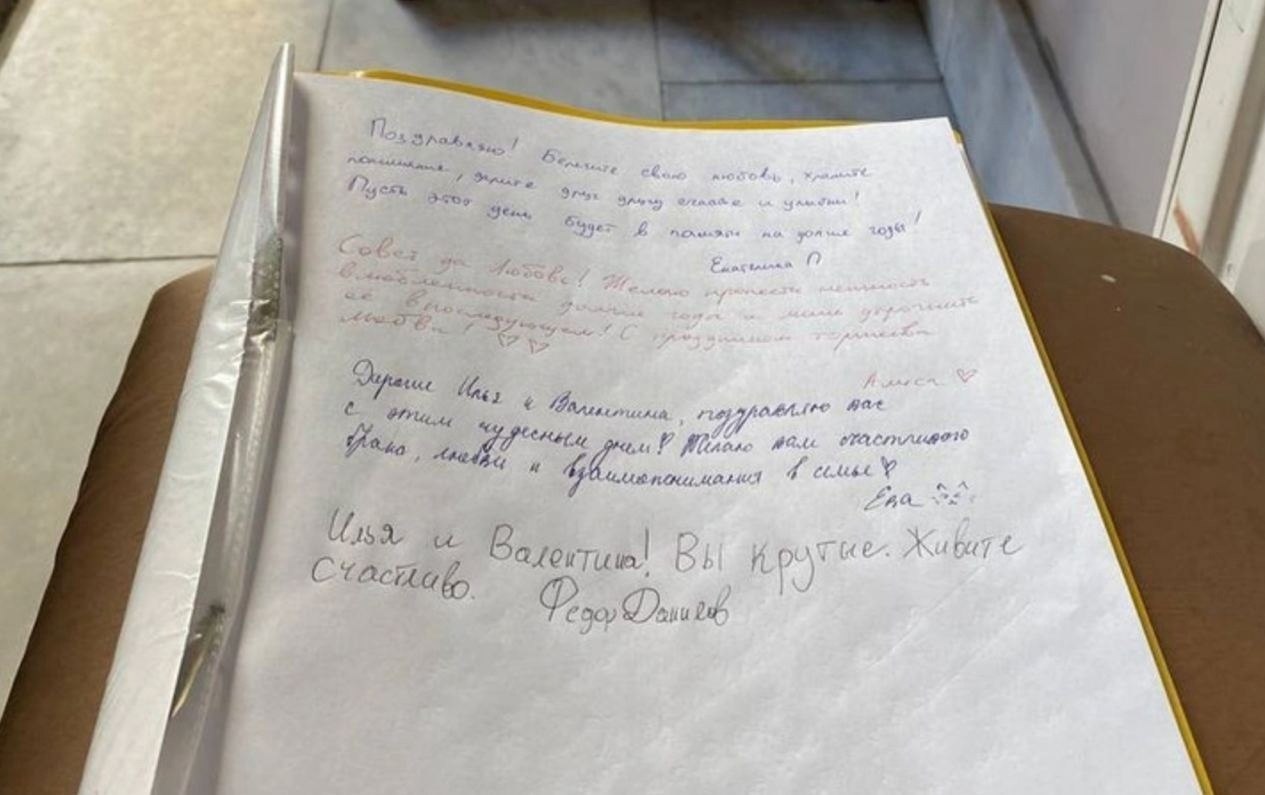 Поздравляю! Берегите свою любовь, храните
понимание, дарите друг другу счастье и улыбки!
Пусть этот день будет в памяти на долгие годы!
Екатерина П
Совет да Любовь! Желаю пронести нежность
влюбленность долгие годы и лишь
её впоследующем! С праздником торжества
любви! ♡♡
Алиса ♡
Дорогие Илья и Валентина, поздравляю вас
с этим чудесным днем! Желаю вам счастливого
брака, любви и взаимопонимания в семье
Ева
Илья и Валентина! Вы крутые. Живите
Счастливо. Федор Данилов